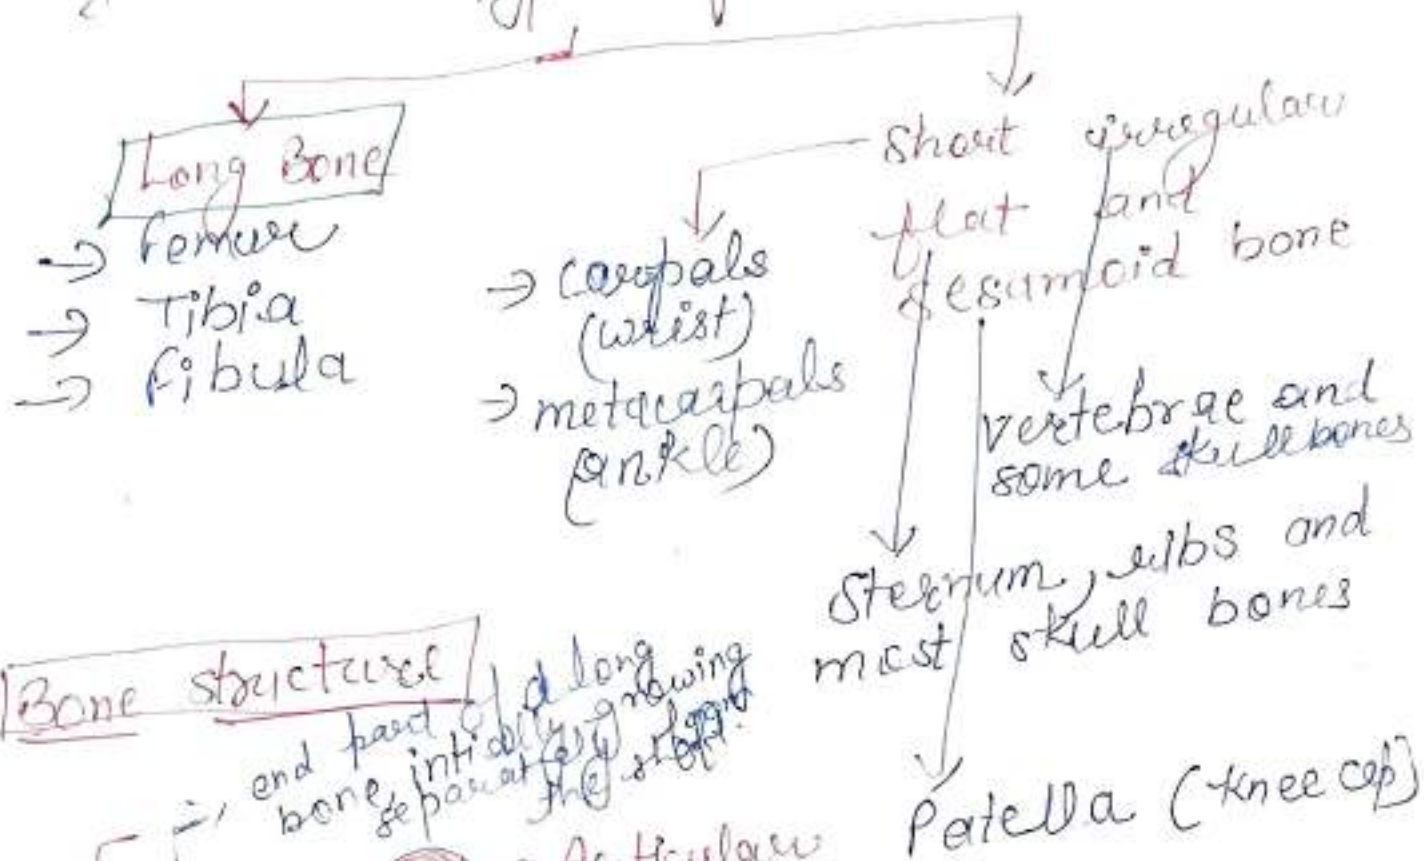 Long Bone
→ femur
→ Tibia
→ fibula
short irregular
flat and
sesamoid bone
→ carpals
(wrist)
→ metacarpals
(ankle)
vertebrae and
some skull bones
Sternum, ribs and
most skull bones
Patella (knee cap)
Bone structure
end part of a long
bone, intially growing
separately
the
Articular